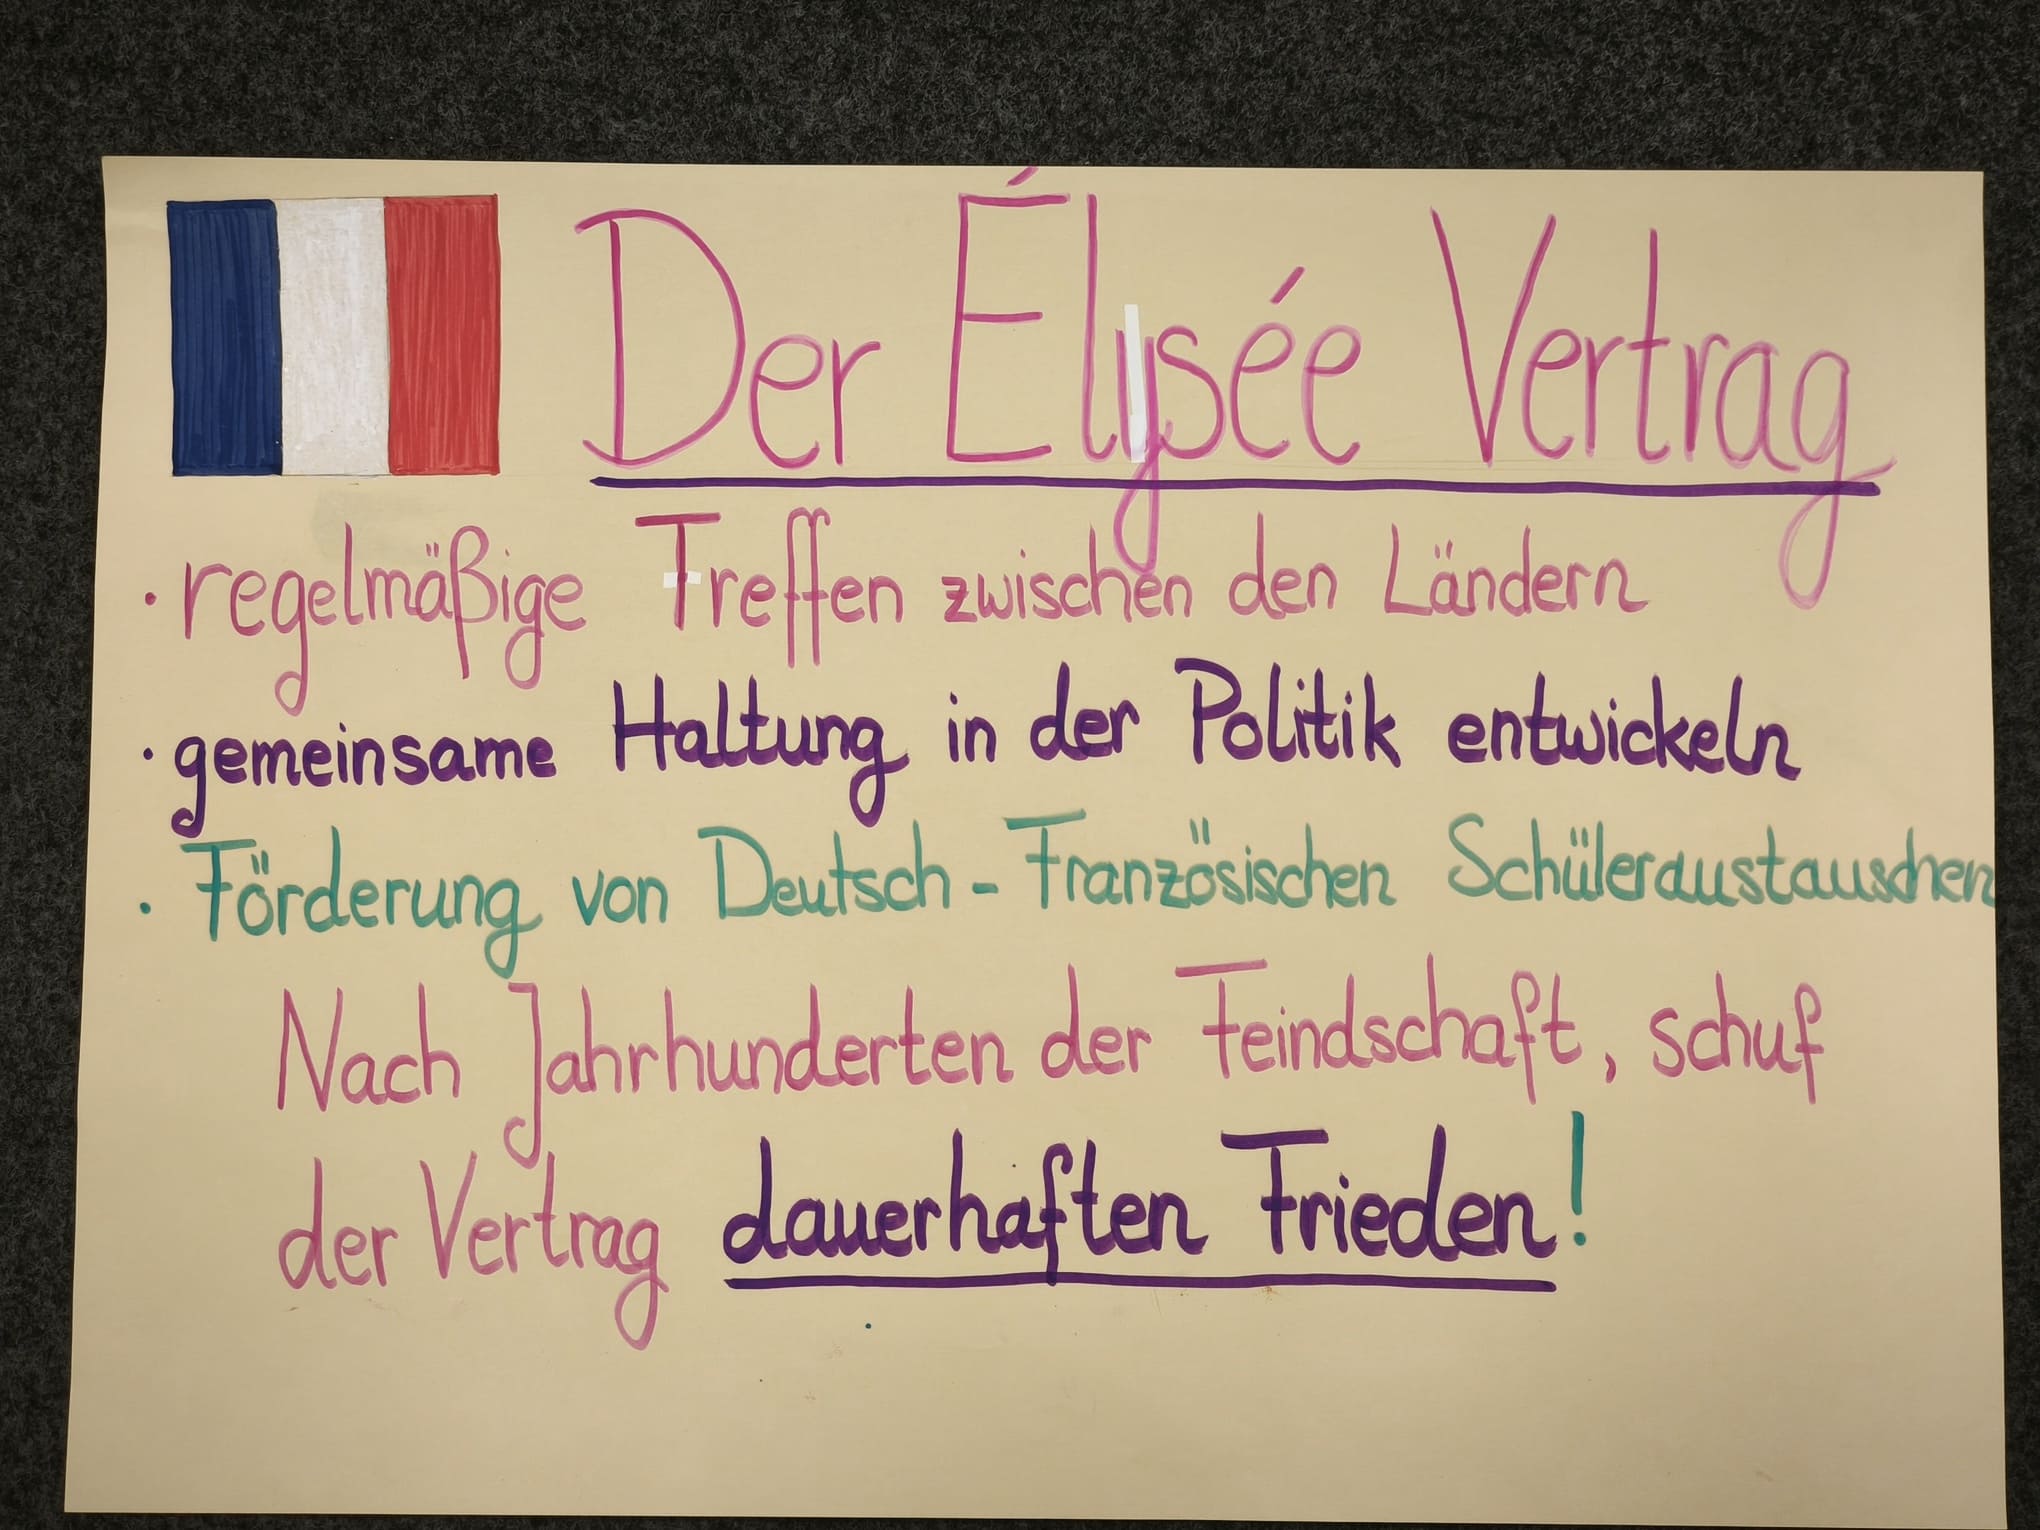 Der Élysée Vertrag
· regelmäßige Treffen zwischen den Ländern
· gemeinsame Haltung in der Politik entwickeln
· Förderung von Deutsch-Französischen Schüleraustauschen
Nach Jahrhunderten der Feindschaft, schuf
der Vertrag dauerhaften Frieden!